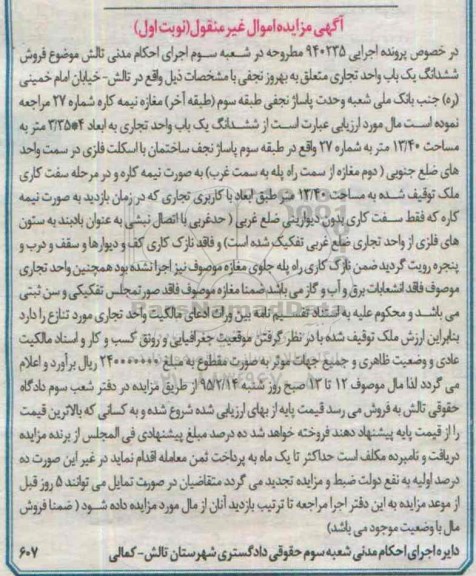 آگهی مزایده اموال غیر منقول (نوبت اول)
در خصوص پرونده اجرایی ۹۴۰۲۳۵ مطروحه در شعبه سوم اجرای احکام مدنی تالش موضوع فروش
ششدانگ یک باب واحد تجاری متعلق به بهروز نجفی با مشخصات ذیل واقع در تالش- خیابان امام خمینی
(ره) جنب بانک ملی شعبه وحدت پاساژ نجفی طبقه سوم (طبقه آخر) مغازه نیمه کاره شماره ۲۷ مراجعه
نموده است مال مورد ارزیابی عبارت است از ششدانگ یک باب واحد تجاری به ابعاد ۴*۳/۳۵ متر به
مساحت ۱۳/۴۰ متر به شماره ۲۷ واقع در طبقه سوم پاساژ نجف ساختمان با اسکلت فلزی در سمت واحد
های ضلع جنوبی (دوم مغازه از سمت راه پله به سمت غرب) به صورت نیمه کاره و در مرحله سفت کاری
ملک توقیف شده به مساحت ۱۳/۴۰ متر طبق ابعاد با کاربری تجاری که در زمان بازدید به صورت نیمه
کاره که فقط سفت کاری بدون دیوارچینی ضلع غربی (حدغربی با اتصال نبشی به عنوان بادبند به ستون
های فلزی از واحد تجاری ضلع غربی تفکیک شده است) و فاقد نازک کاری کف و دیوارها و سقف و درب و
پنجره رویت گردید ضمن نازک کاری راه پله جلوی مغازه موصوف نیز اجرا نشده بود همچنین واحد تجاری
موصوف فاقد انشعابات برق و آب و گاز می باشد ضمنا مغازه موصوف فاقد صورتمجلس تفکیکی و سن ثبتی
می باشد و محکوم علیه به استناد تقسیم نامه بین وراث ادعای مالکیت واحد تجاری مورد تنازع را دارد
بنابراین ارزش ملک توقیف شده با در نظر گرفتن موقعیت جغرافیایی و رونق کسب و کار و اسناد مالکیت
عادی و وضعیت ظاهری و جمیع جهات موثر به صورت مقطوع به مبلغ ریال برآورد و اعلام
می گردد لذا مال موصوف ۱۲ تا ۱۳ صبح روز شنبه ۹۵/۲/۱۴ از طریق مزایده در دفتر شعب سوم دادگاه
حقوقی تالش به فروش می رسد قیمت پایه از بهای ارزیابی شده شروع شده و به کسانی که بالاترین قیمت
را از قیمت پایه پیشنهاد دهند فروخته خواهد شد ده درصد مبلغ پیشنهادی فی المجلس از برنده مزایده
دریافت و نامبرده مکلف است حداکثر تا یک ماه به پرداخت ثمن معامله اقدام نماید در غیر این صورت ده
درصد اولیه به نفع دولت ضبط و مزایده تجدید می گردد متقاضیان در صورت تمایل می توانند ۵ روز قبل
از موعد مزایده به این دفتر اجرا مراجعه تا ترتیب بازدید آنان از مال مورد مزایده داده شود (ضمنا فروش
مال با وضعیت موجود می باشد)
دایره اجرای احکام مدنی شعبه سوم حقوقی دادگستری شهرستان تالش- کمالی
۶۰۷